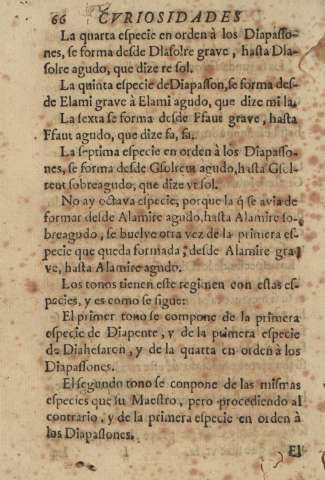 66 CVRIOSIDADES
La quarta especie en orden à los Diapasso-
nes, se forma desde Dlasolre grave, hasta Dla-
solre agudo, que dize re sol.
La quinta especie de Diapasson, se forma des-
de Elami grave à Elami agudo, que dize mi la.
La sexta se forma desde Ffaut grave, hasta
Ffaut agudo, que dize fa, fa.
La septima especie en orden à los Diapasso-
nes, se forma desde Gsolreut agudo, hasta Gsol-
reut sobreagudo, que dize ut sol.
No ay octava especie, porque la q̃ se avia de
formar desde Alamire agudo, hasta Alamire so-
breagudo, se buelve otra vez de la primera es-
pecie que queda formada, desde Alamire gra-
ve, hasta Alamire agudo.
Los tonos tienen este regimen con estas es-
pecies, y es como se sigue:
El primer tono se compone de la primera
especie de Diapente, y de la primera especie
de Diahesaren, y de la quarta en orden à los
Diapassones.
El segundo tono se conpone de las mismas
especies que su Maestro, pero procediendo al
contrario, y de la primera especie en orden à
los Diapassones.
El